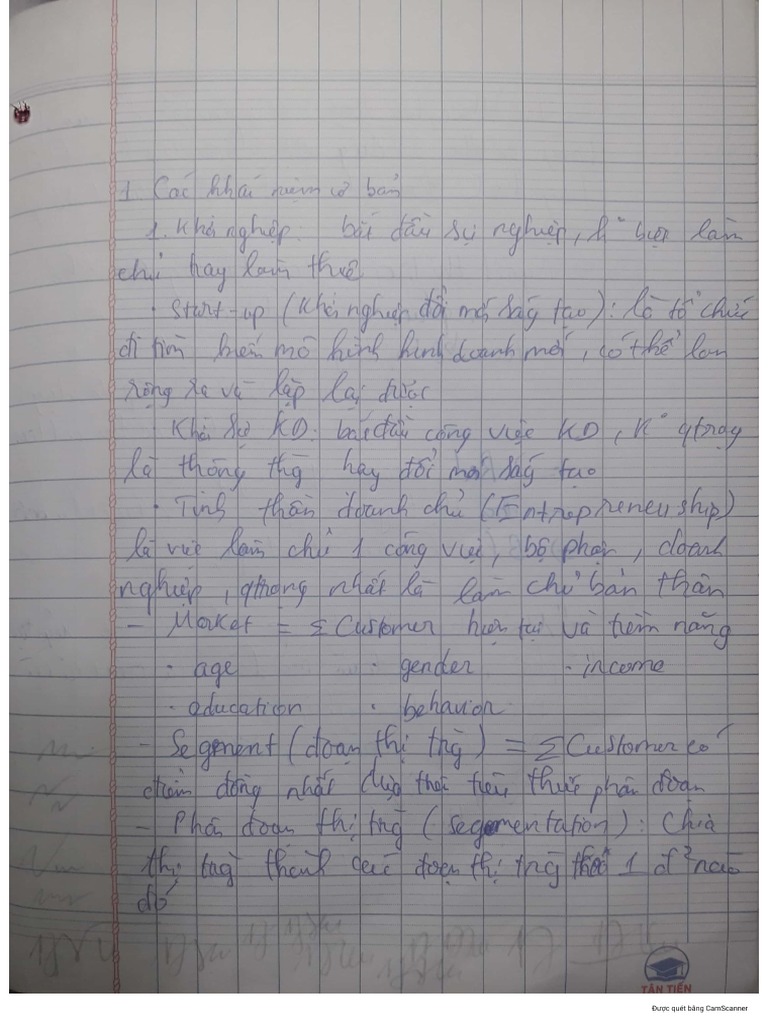 1. Các khái niệm cơ bản
1. Khởi nghiệp: bắt đầu sự nghiệp, k° biệt làm
chủ hay làm thuê
· Start-up (Khởi nghiệp đổi mới sáng tạo): là tổ chức
đi tìm kiếm mô hình kinh doanh mới, có thể lan
rộng ra và lặp lại được
Khởi sự KD: bắt đầu công việc KD, k° qtrọng
là thông thg hay đổi mới sáng tạo
· Tinh thần doanh chủ (Entrepreneurship)
là việc làm chủ 1 công việc, bộ phận, doanh
nghiệp, qtrọng nhất là làm chủ bản thân
- Market = Σ Customer hiện tại và tiềm năng
· age · gender · income
· education · behavior
- Segment (đoạn thị trg) = Σ Customer có
điểm đồng nhất theo tiêu thức phân đoạn
- Phân đoạn thị trg (segmentation): Chia
thị trg thành các đoạn thị trg theo 1 nào
đó
TÂN TIẾN
Được quét bằng CamScanner